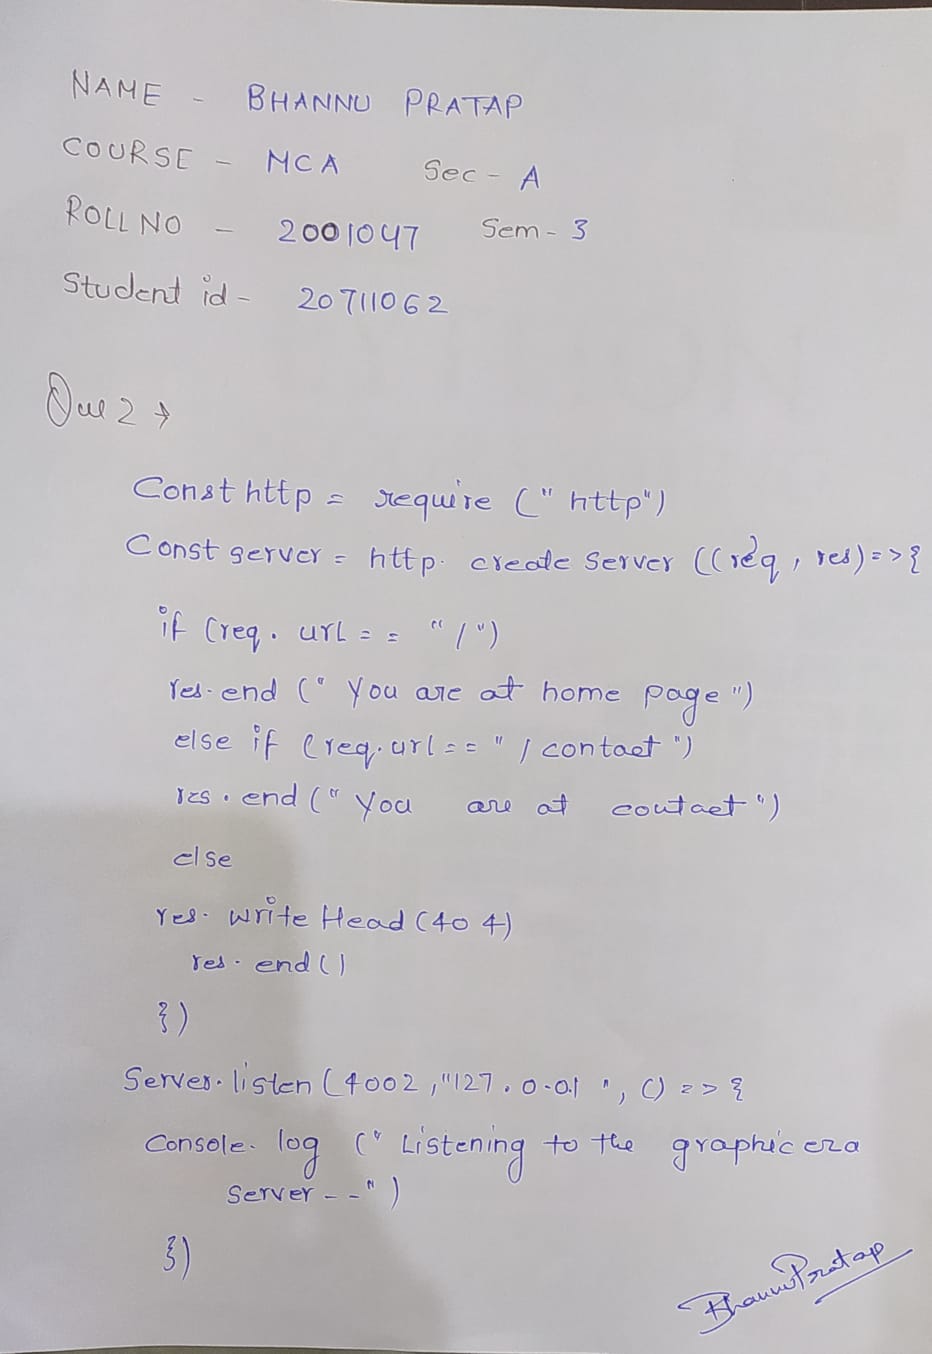 NAME - BHANNU PRATAP
COURSE - MCA Sec - A
ROLL NO - 2001047 Sem - 3
Student id - 20711062
Que 2 →
Const http = require (" http")
Const server = http. create Server ((req, res)=>{
if (req. url = = "/")
res. end (" You are at home page ")
else if (req. url == " / contact ")
res. end (" You are at contact ")
else
res. write Head (404)
res. end ()
})
Server. listen (4002 ,"127. 0.0.1 ", () => {
Console. log (" Listening to the graphic era
Server - - " )
})
Bhannu Pratap